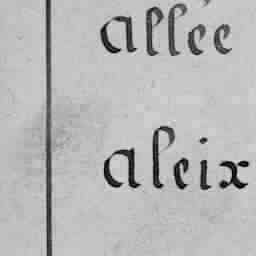 allée
aleix